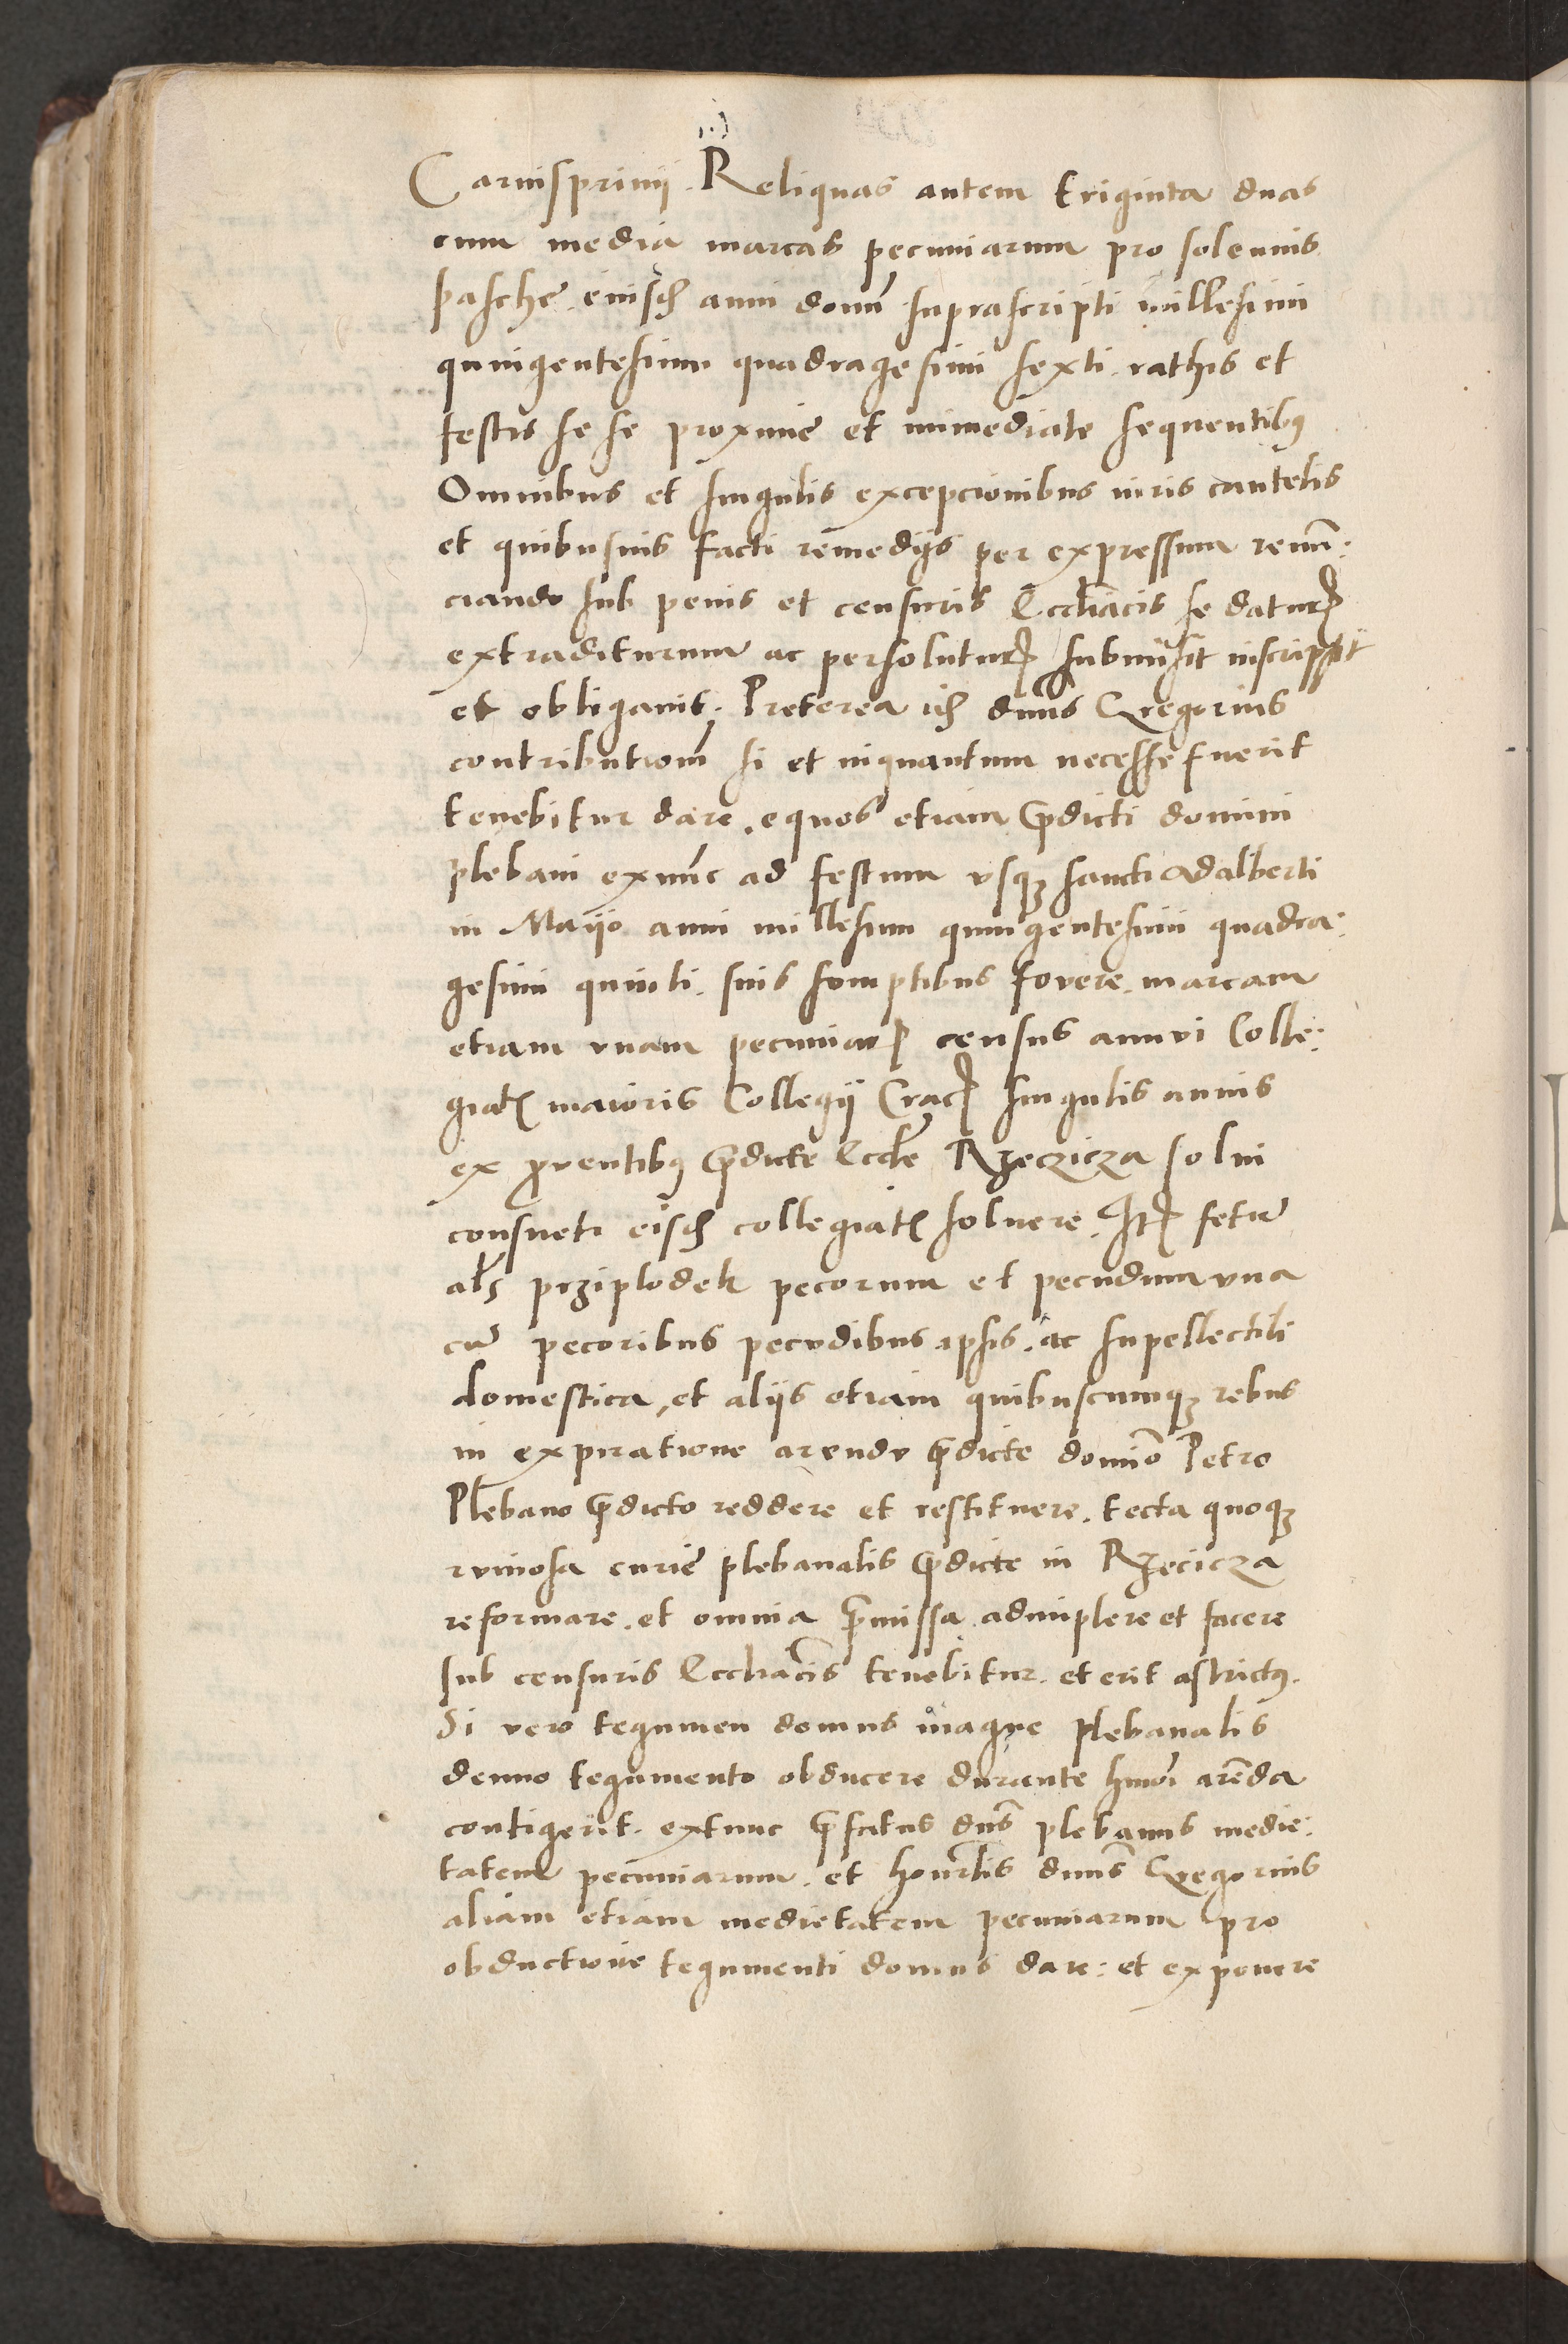 Carnisprivii. Reliquas autem triginta duas
cum media marcas pecuniarum pro solennis
pasche. eiusdẽ anni domi suprascripti millesimi
quingentesimi quadragesimi sexti. rathis et
festis se se proxime et immediate sequentibꝰ
Omnibus et singulis excepcionibus iuris cautelis
et quibusvis facti remedijs per expressum renũ:
ciando sub penis et censuris Eccl̃iacis se daturꝝ
extraditurum ac persoluturꝝ submisit inscripsit
et obligavit. Preterea idẽ dnũs Gregorius
contributionẽ si et inquantum necesse fuerit
tenebitur dare. equos etiam p̃dicti domini
plebani exnũc ad festum vsqꝫ sancti Adalberti
in Maijo anni millesimi quingentesimi quadra:
gesimi quinti. suis sumptibus fovere. marcam
etiam vnam pecuniarꝝ census annvi Colle:
giatꝭ maioris Collegij Cracꝭ singulis annis
ex ꝓventibꝰ p̃dicte Eccl̃e Rzeczicza solvi
consueti eisdẽ collegiatꝭ solvere. Itꝭ fetũ
al̃s prziplodek pecorum et pecudum vna
cũ pecoribus pecvdibus ipsis. ac supellectili
domestica, et alijs etiam quibuscumqꝫ rebus
in expiratione arende p̃dicte domĩo Petro
Plebano p̃dicto reddere et restituere. tecta quoqꝫ
rvinosa curie plebanalis p̃dicte in Rzecicza
reformare. et omnia p̃missa adimplere et facere
sub censuris Eccl̃iacis tenebitur. et erit astrictꝰ.
Si vero tegumen domus magne plebanalis
denuo tegumento obducere durante hmõi arẽda
contigerit. extunc p̃fatus dnũs plebanus medie:
tatem pecuniarum. et honorl̃is dnũs Gregorius
aliam etiam medietatem pecuniarum pro
obductione tegumenti domus dare: et exponere